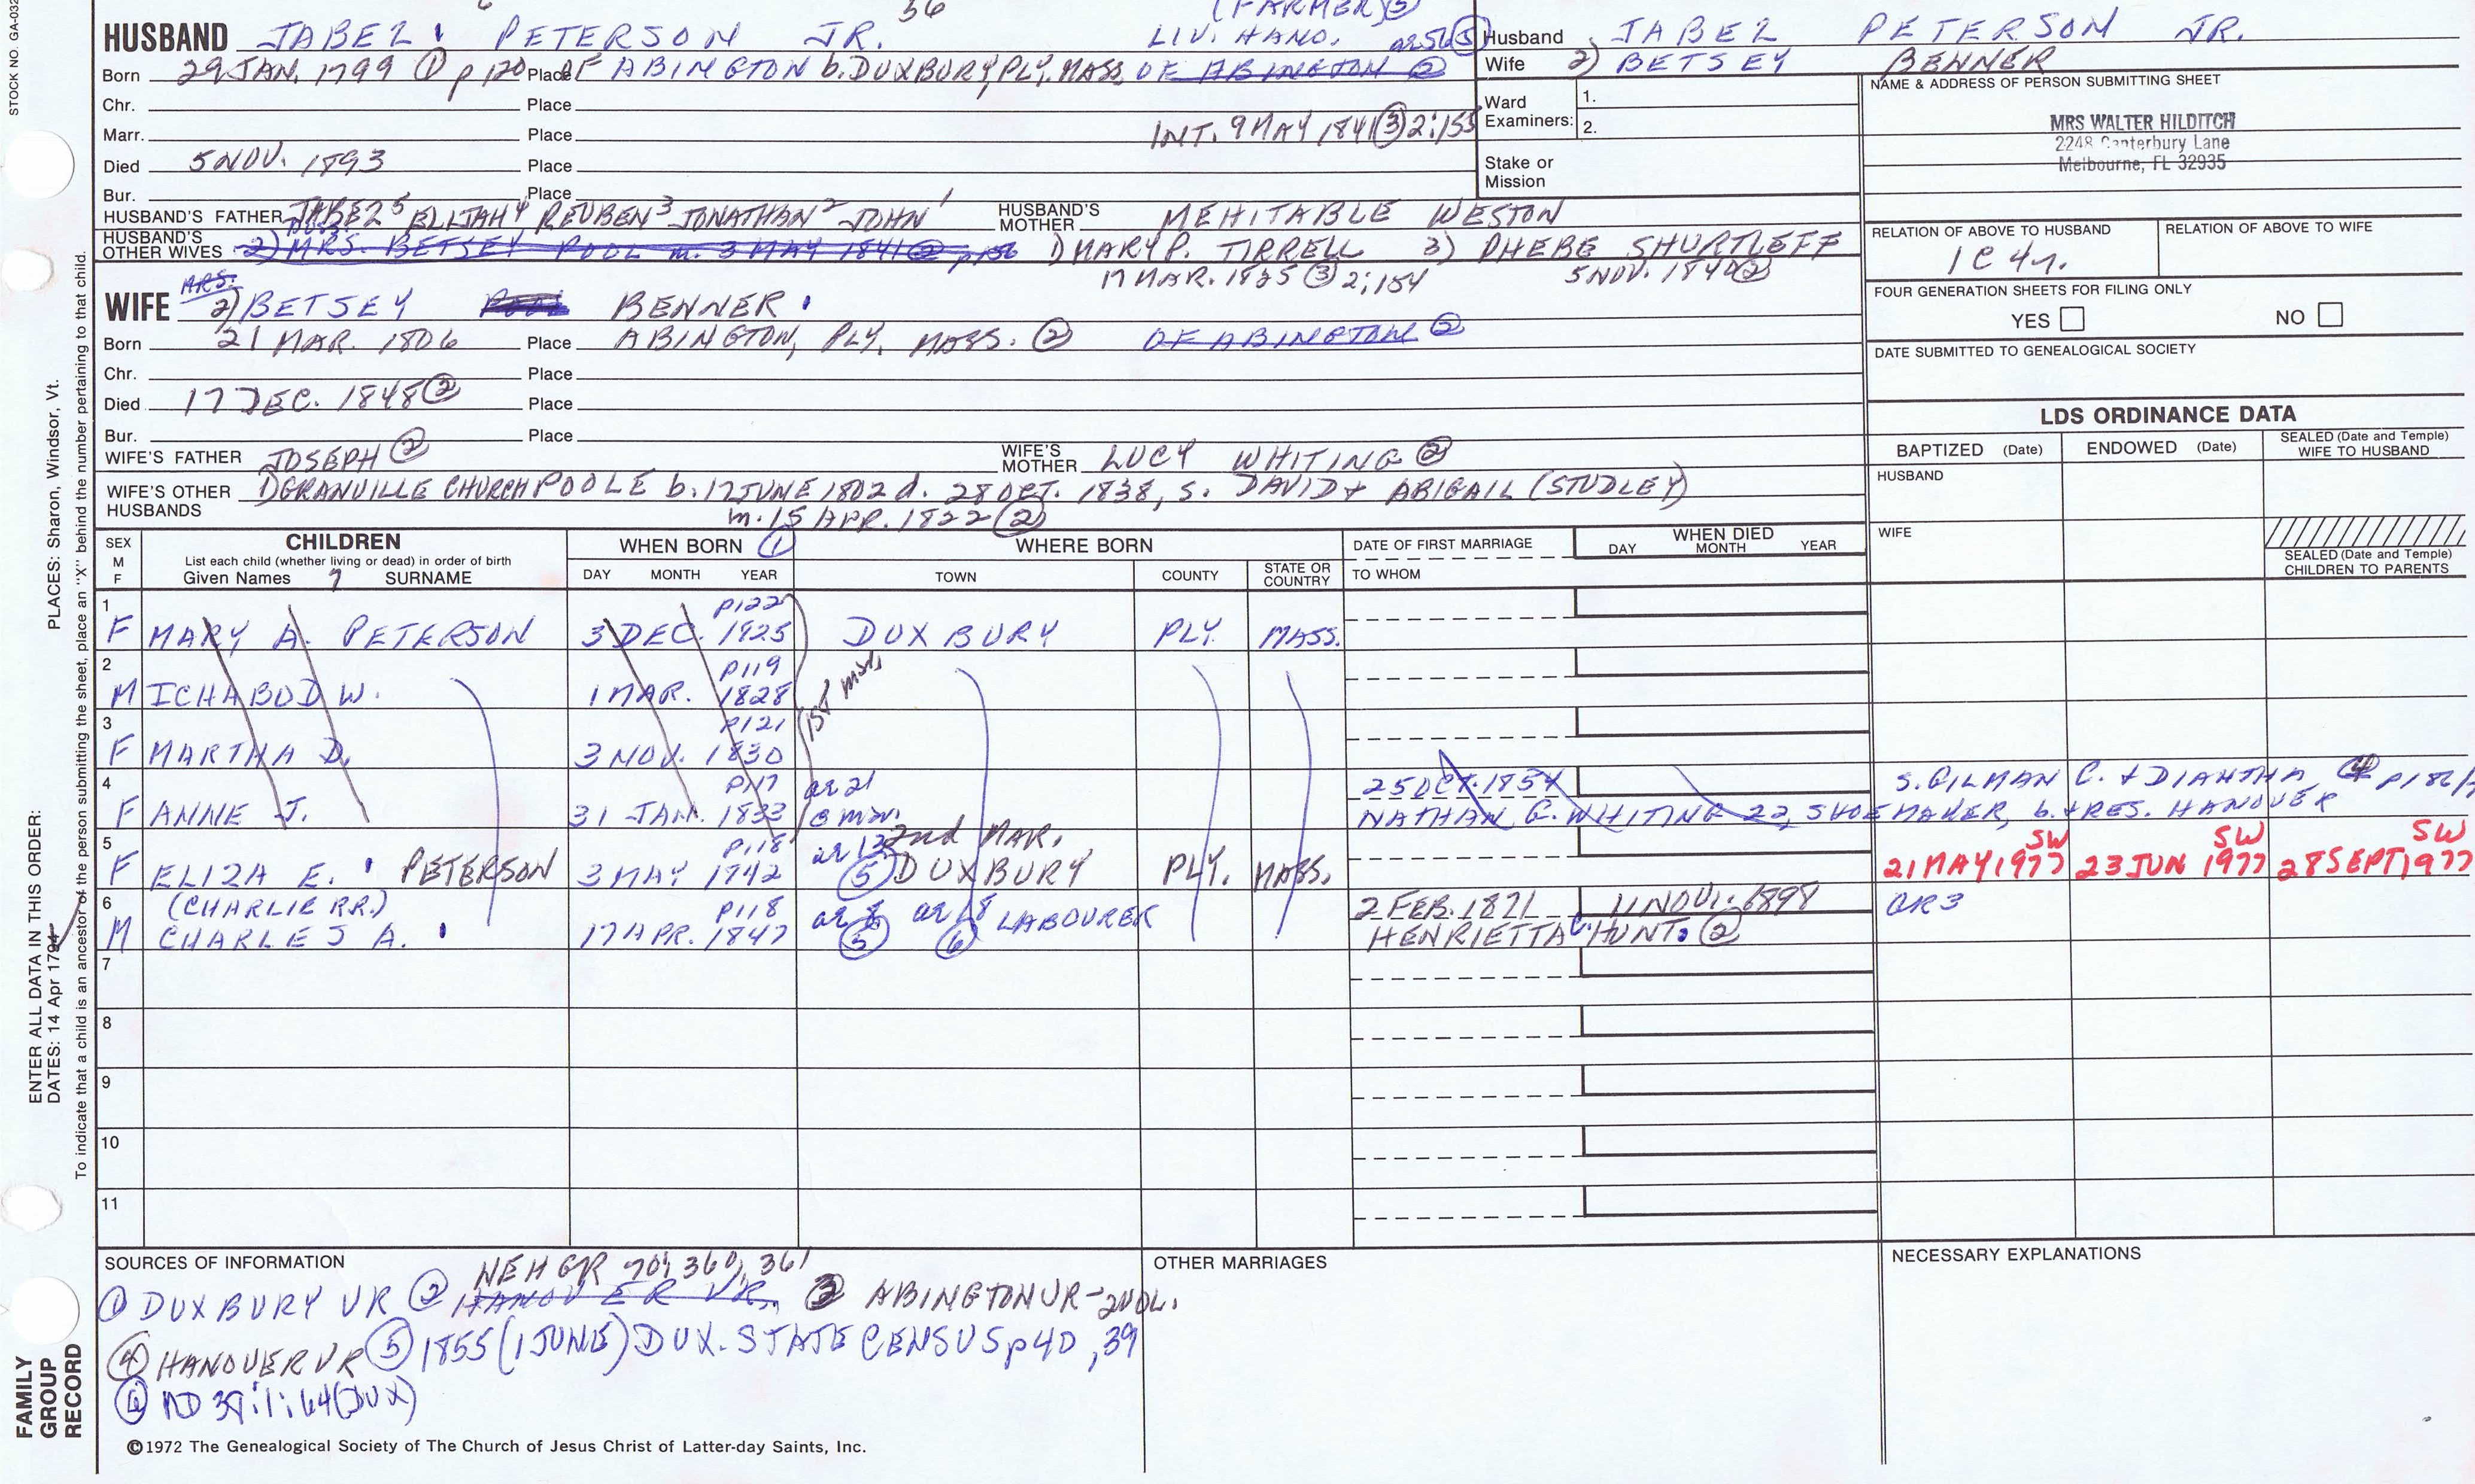 STOCK NO. GA-032
36
(FARMER) 5
HUSBAND JABEZ PETERSON JR. LIV. HANO. ae 56 5
Born 29 JAN. 1799 1 p 120 Place OF ABINGTON b. DUXBURY, PLY, MASS OF ABINGTON 2
Chr. Place
Marr. Place INT. 9 MAY 1841 3 2:155
Died 5 NOV. 1893 Place
Bur. Place
HUSBAND'S FATHER JABEZ 5 ELIJAH 4 REUBEN 3 JONATHAN 2 JOHN 1 HUSBAND'S MOTHER MEHITABLE WESTON
HUSBAND'S OTHER WIVES 2) MRS. BETSEY POOL m. 3 MAY 1841 2 p156 1) MARY P. TIRRELL 3) PHEBE SHURTLEFF
17 MAR. 1825 3 2:154 5 NOV. 1848 2
MRS.
WIFE 2) BETSEY BENNER
Born 21 MAR. 1806 Place ABINGTON, PLY. MASS. 2 OF ABINGTON 2
Chr. Place
Died 17 DEC. 1848 2 Place
Bur. Place
WIFE'S FATHER JOSEPH 2 WIFE'S MOTHER LUCY WHITING 2
WIFE'S OTHER HUSBANDS 1) GRANVILLE CHURCH POOLE b. 17 JUNE 1802 d. 28 OCT. 1838, S. DAVID + ABIGAIL (STUDLEY)
m. 15 APR. 1822 2
Husband JABEZ PETERSON JR.
Wife 2) BETSEY BENNER
Ward Examiners: 1.
2.
Stake or Mission
NAME & ADDRESS OF PERSON SUBMITTING SHEET
MRS WALTER HILDITCH
2248 Canterbury Lane
Melbourne, FL 32935
RELATION OF ABOVE TO HUSBAND RELATION OF ABOVE TO WIFE
1C 4r.
FOUR GENERATION SHEETS FOR FILING ONLY
YES NO
DATE SUBMITTED TO GENEALOGICAL SOCIETY
LDS ORDINANCE DATA
BAPTIZED (Date) ENDOWED (Date) SEALED (Date and Temple) WIFE TO HUSBAND
HUSBAND
WIFE
SEALED (Date and Temple) CHILDREN TO PARENTS
SEX M F
CHILDREN
List each child (whether living or dead) in order of birth
Given Names 7 SURNAME
WHEN BORN 1
DAY MONTH YEAR
WHERE BORN
TOWN COUNTY STATE OR COUNTRY
DATE OF FIRST MARRIAGE
TO WHOM
WHEN DIED
DAY MONTH YEAR
1 P122
F MARY A. PETERSON 3 DEC. 1825 DUXBURY PLY. MASS.
2 P119 1st mar.
M ICHABOD W. 1 MAR. 1828
3 P121
F MARTHA D. 3 NOV. 1830
4 P117 ae 21 25 OCT. 1854 S. GILMAN C. + DIANTHA 4 p182
F ANNE J. 31 JAN. 1833 NATHAN G. WHITING 22, SHOEMAKER, b. + RES. HANOVER
5 P118 ae 13 2nd MAR. SW SW SW
F ELIZA E. PETERSON 3 MAY 1842 5 DUXBURY PLY. MASS. 21 MAY 1977 23 JUN 1977 28 SEPT 1977
6 (CHARLIE RR.) P118 ae 8 2 FEB. 1871 11 NOV. 1898
M CHARLES A. 17 APR. 1847 5 6 LABOURER HENRIETTA C. HUNT 2
7
8
9
10
11
SOURCES OF INFORMATION
NEHGR 70: 360, 361
1 DUXBURY VR 2 HANOVER VR. 3 ABINGTON VR - 2VOL.
4 HANOVER VR 5 1855 (1 JUNE) DUX. STATE CENSUS p 40, 39
6 MD 39:1:64 (DUX)
OTHER MARRIAGES
NECESSARY EXPLANATIONS
©1972 The Genealogical Society of The Church of Jesus Christ of Latter-day Saints, Inc.
ENTER ALL DATA IN THIS ORDER:
DATES: 14 Apr 1794 PLACES: Sharon, Windsor, Vt.
To indicate that a child is an ancestor of the person submitting the sheet, place an "X" behind the number pertaining to that child.
FAMILY GROUP RECORD